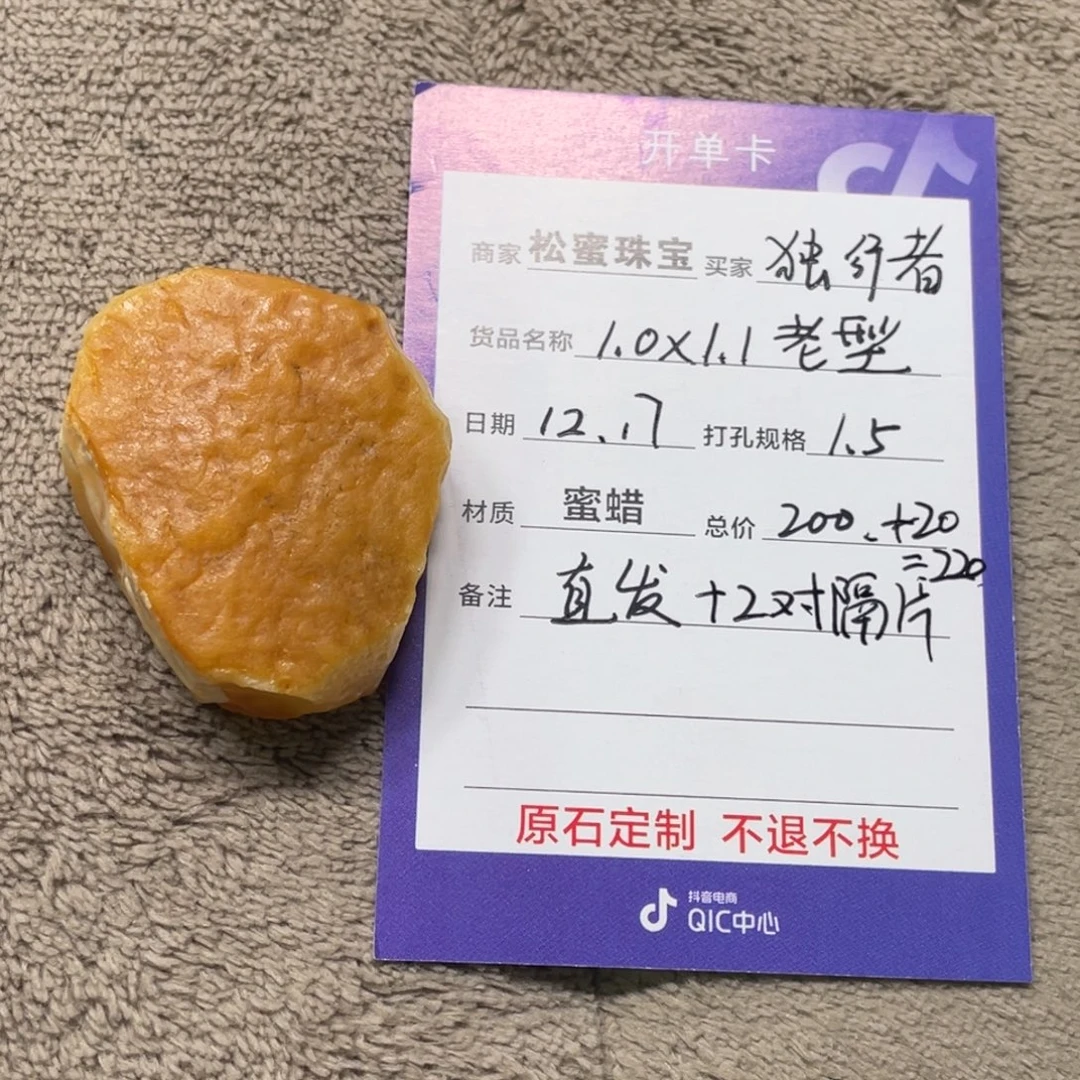 开单卡
商家 松蜜珠宝 买家 独行者
货品名称 1.0X1.1 老型
日期 12.17 打孔规格 1.5
材质 蜜蜡 总价 200.+20
=220
备注 直发+2对隔片
原石定制 不退不换
抖音电商
QIC中心